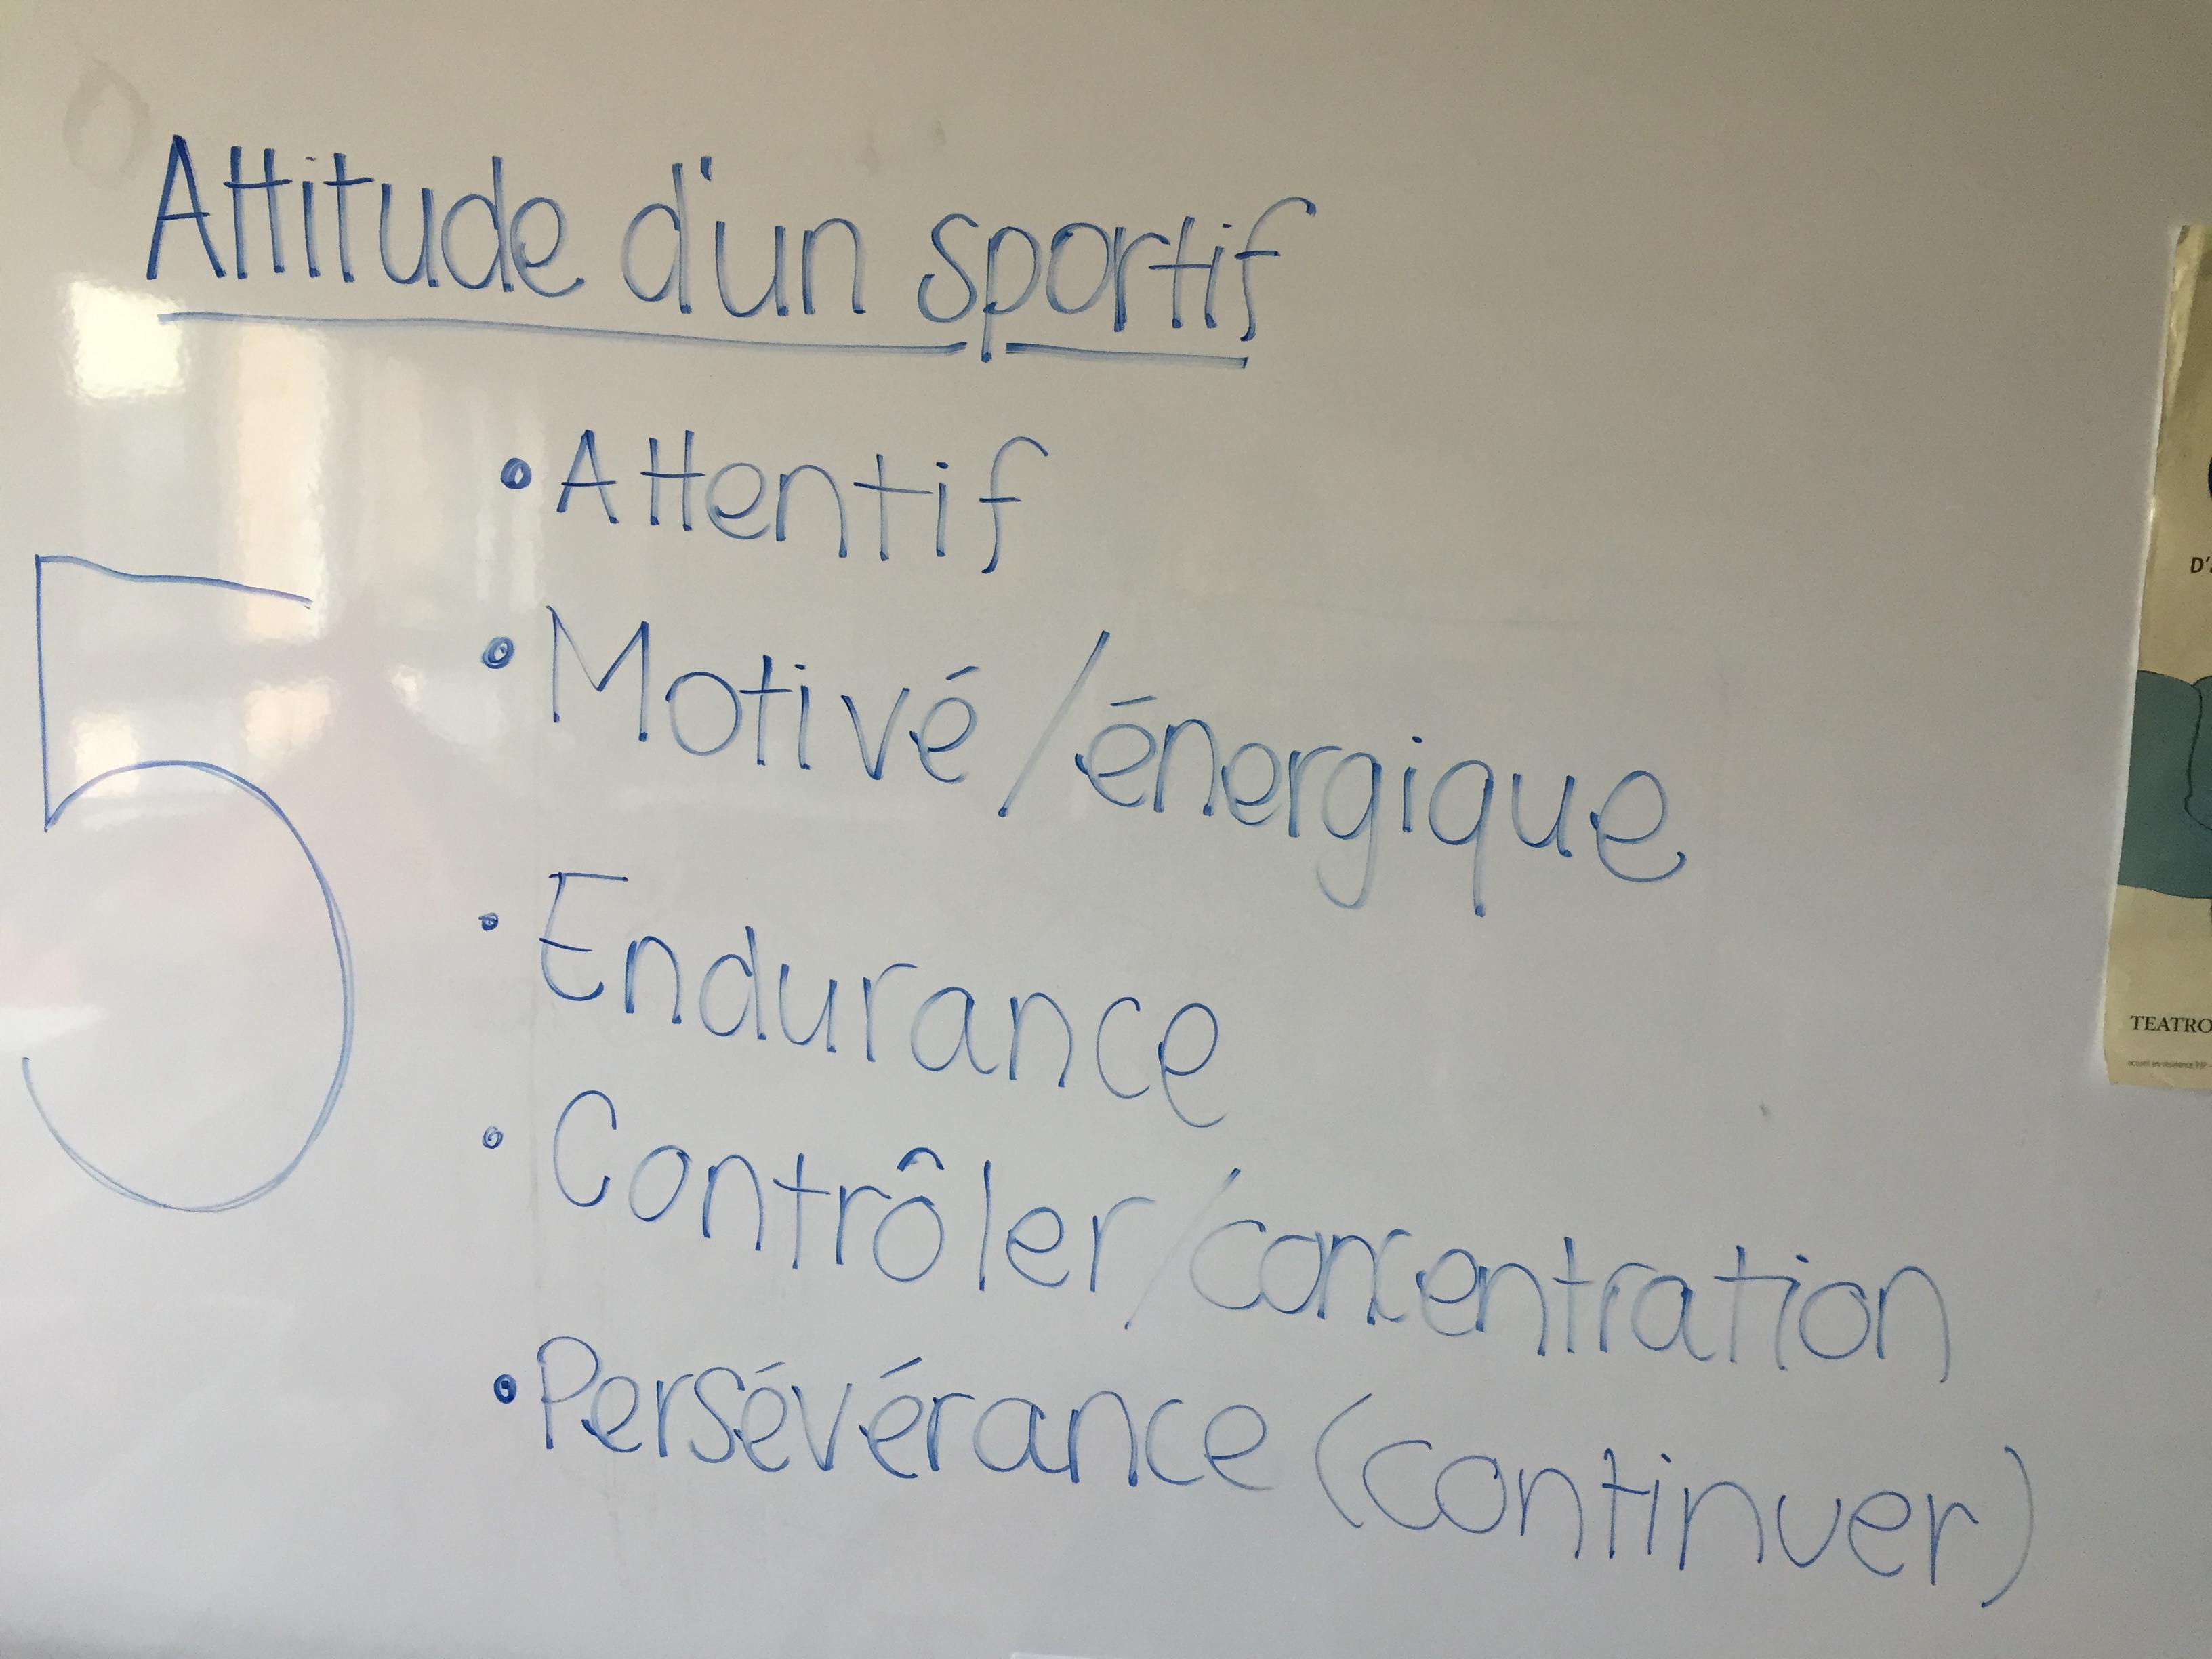 Attitude d'un sportif
• Attentif
5
• Motivé/énergique
• Endurance
• Contrôler/concentration
• Persévérance (continuer)
D'
TEATRO